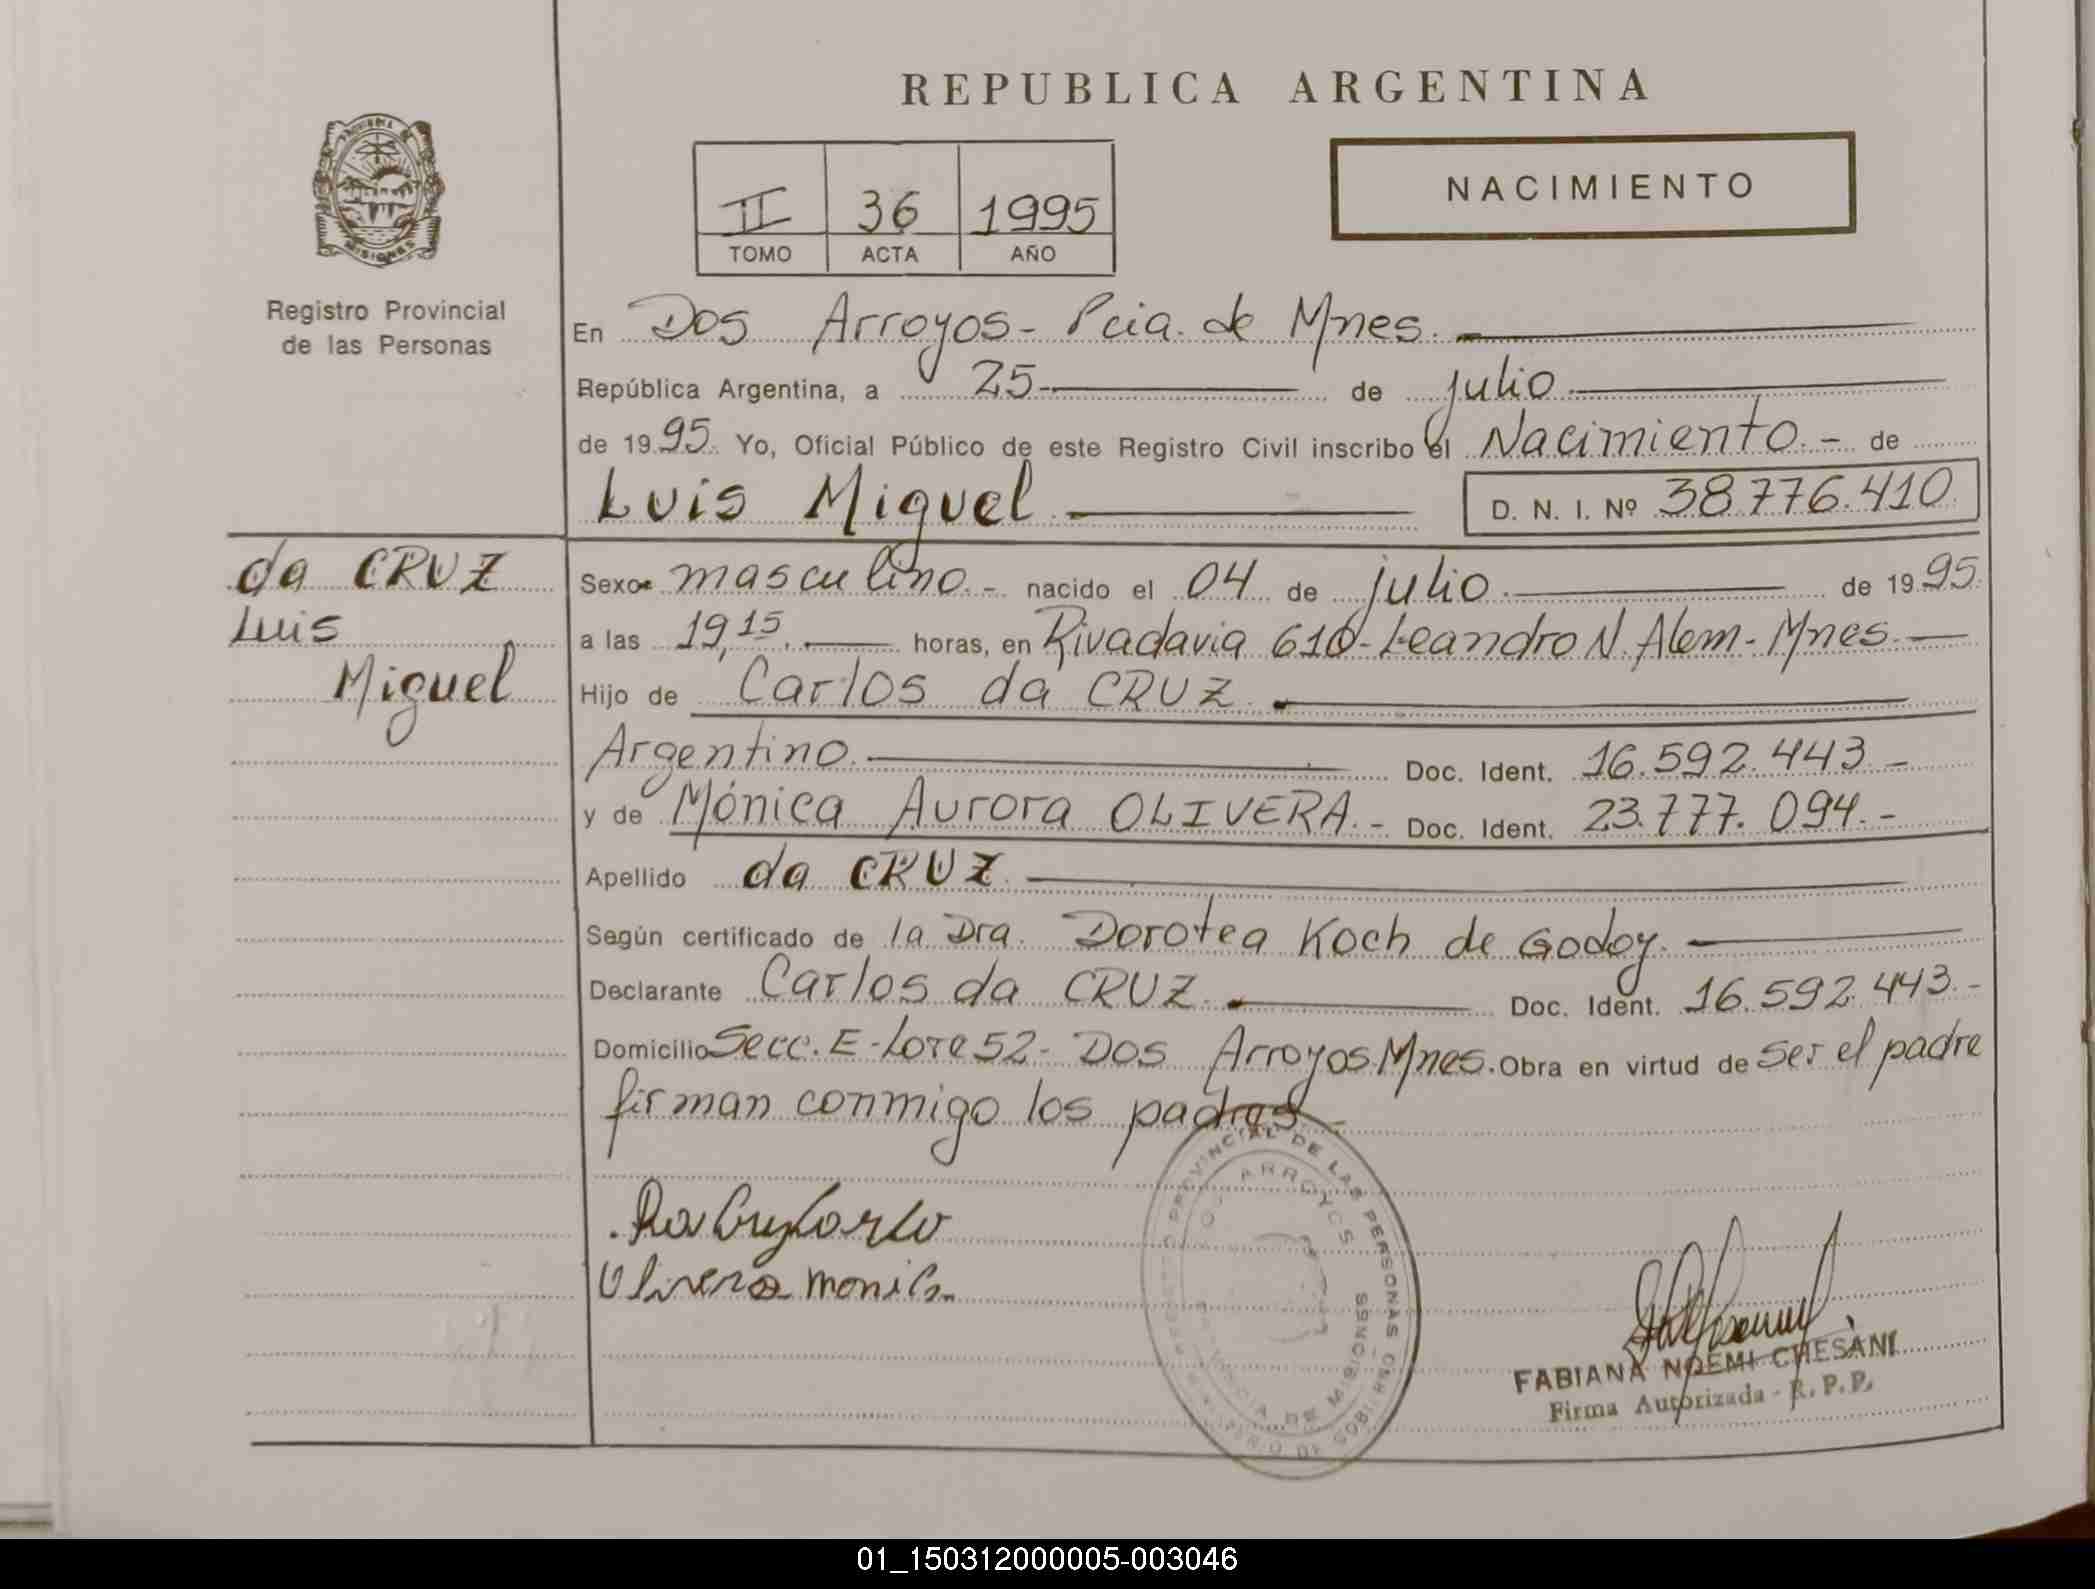 REPUBLICA ARGENTINA
NACIMIENTO
II 36 1995
TOMO ACTA AÑO
MISIONES
Registro Provincial
de las Personas
En Dos Arroyos - Pcia. de Mnes.
República Argentina, a 25 de julio
de 1995. Yo, Oficial Público de este Registro Civil inscribo el Nacimiento.- de
Luis Miguel D. N. I. Nº 38.776.410
da CRUZ
Luis
Miguel
Sexo masculino.- nacido el 04 de julio de 1995.
a las 19,15. horas, en Rivadavia 610 - Leandro N. Alem - Mnes.
Hijo de Carlos da CRUZ.
Argentino. Doc. Ident. 16.592.443.-
y de Mónica Aurora OLIVERA.- Doc. Ident. 23.777.094.-
Apellido da CRUZ
Según certificado de la Dra. Dorotea Koch de Godoy.
Declarante Carlos da CRUZ. Doc. Ident. 16.592.443.-
Domicilio Secc. E - Lote 52 - Dos Arroyos. Mnes. Obra en virtud de ser el padre
firman conmigo los padres.-
Da Cruz Carlo
Olivera Monica
PROVINCIAL DE LAS PERSONAS
DOS ARROYOS
PROVINCIA DE MISIONES
FABIANA NOEMI CHESANI
Firma Autorizada - R. P. P.
01_150312000005-003046